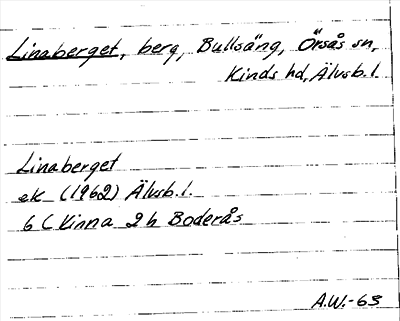 Linaberget, berg, Bullsäng, Örsås sn,
Kinds hd, Älvsb. l.
Linaberget
ek (1962) Älvsb. l.
6 C Kinna 2 h Boderås
A.W.-63